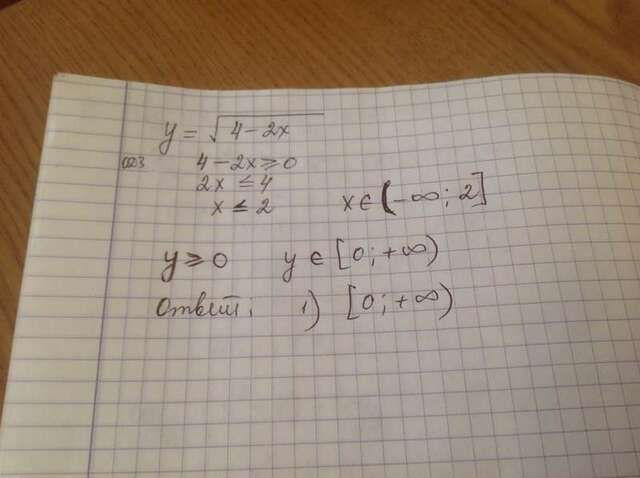 y = √4-2x
ОДЗ 4-2x ≥ 0
2x ≤ 4
x ≤ 2 x ∈ (-∞; 2]
y ≥ 0 y ∈ [0; +∞)
Ответ: 1) [0; +∞)